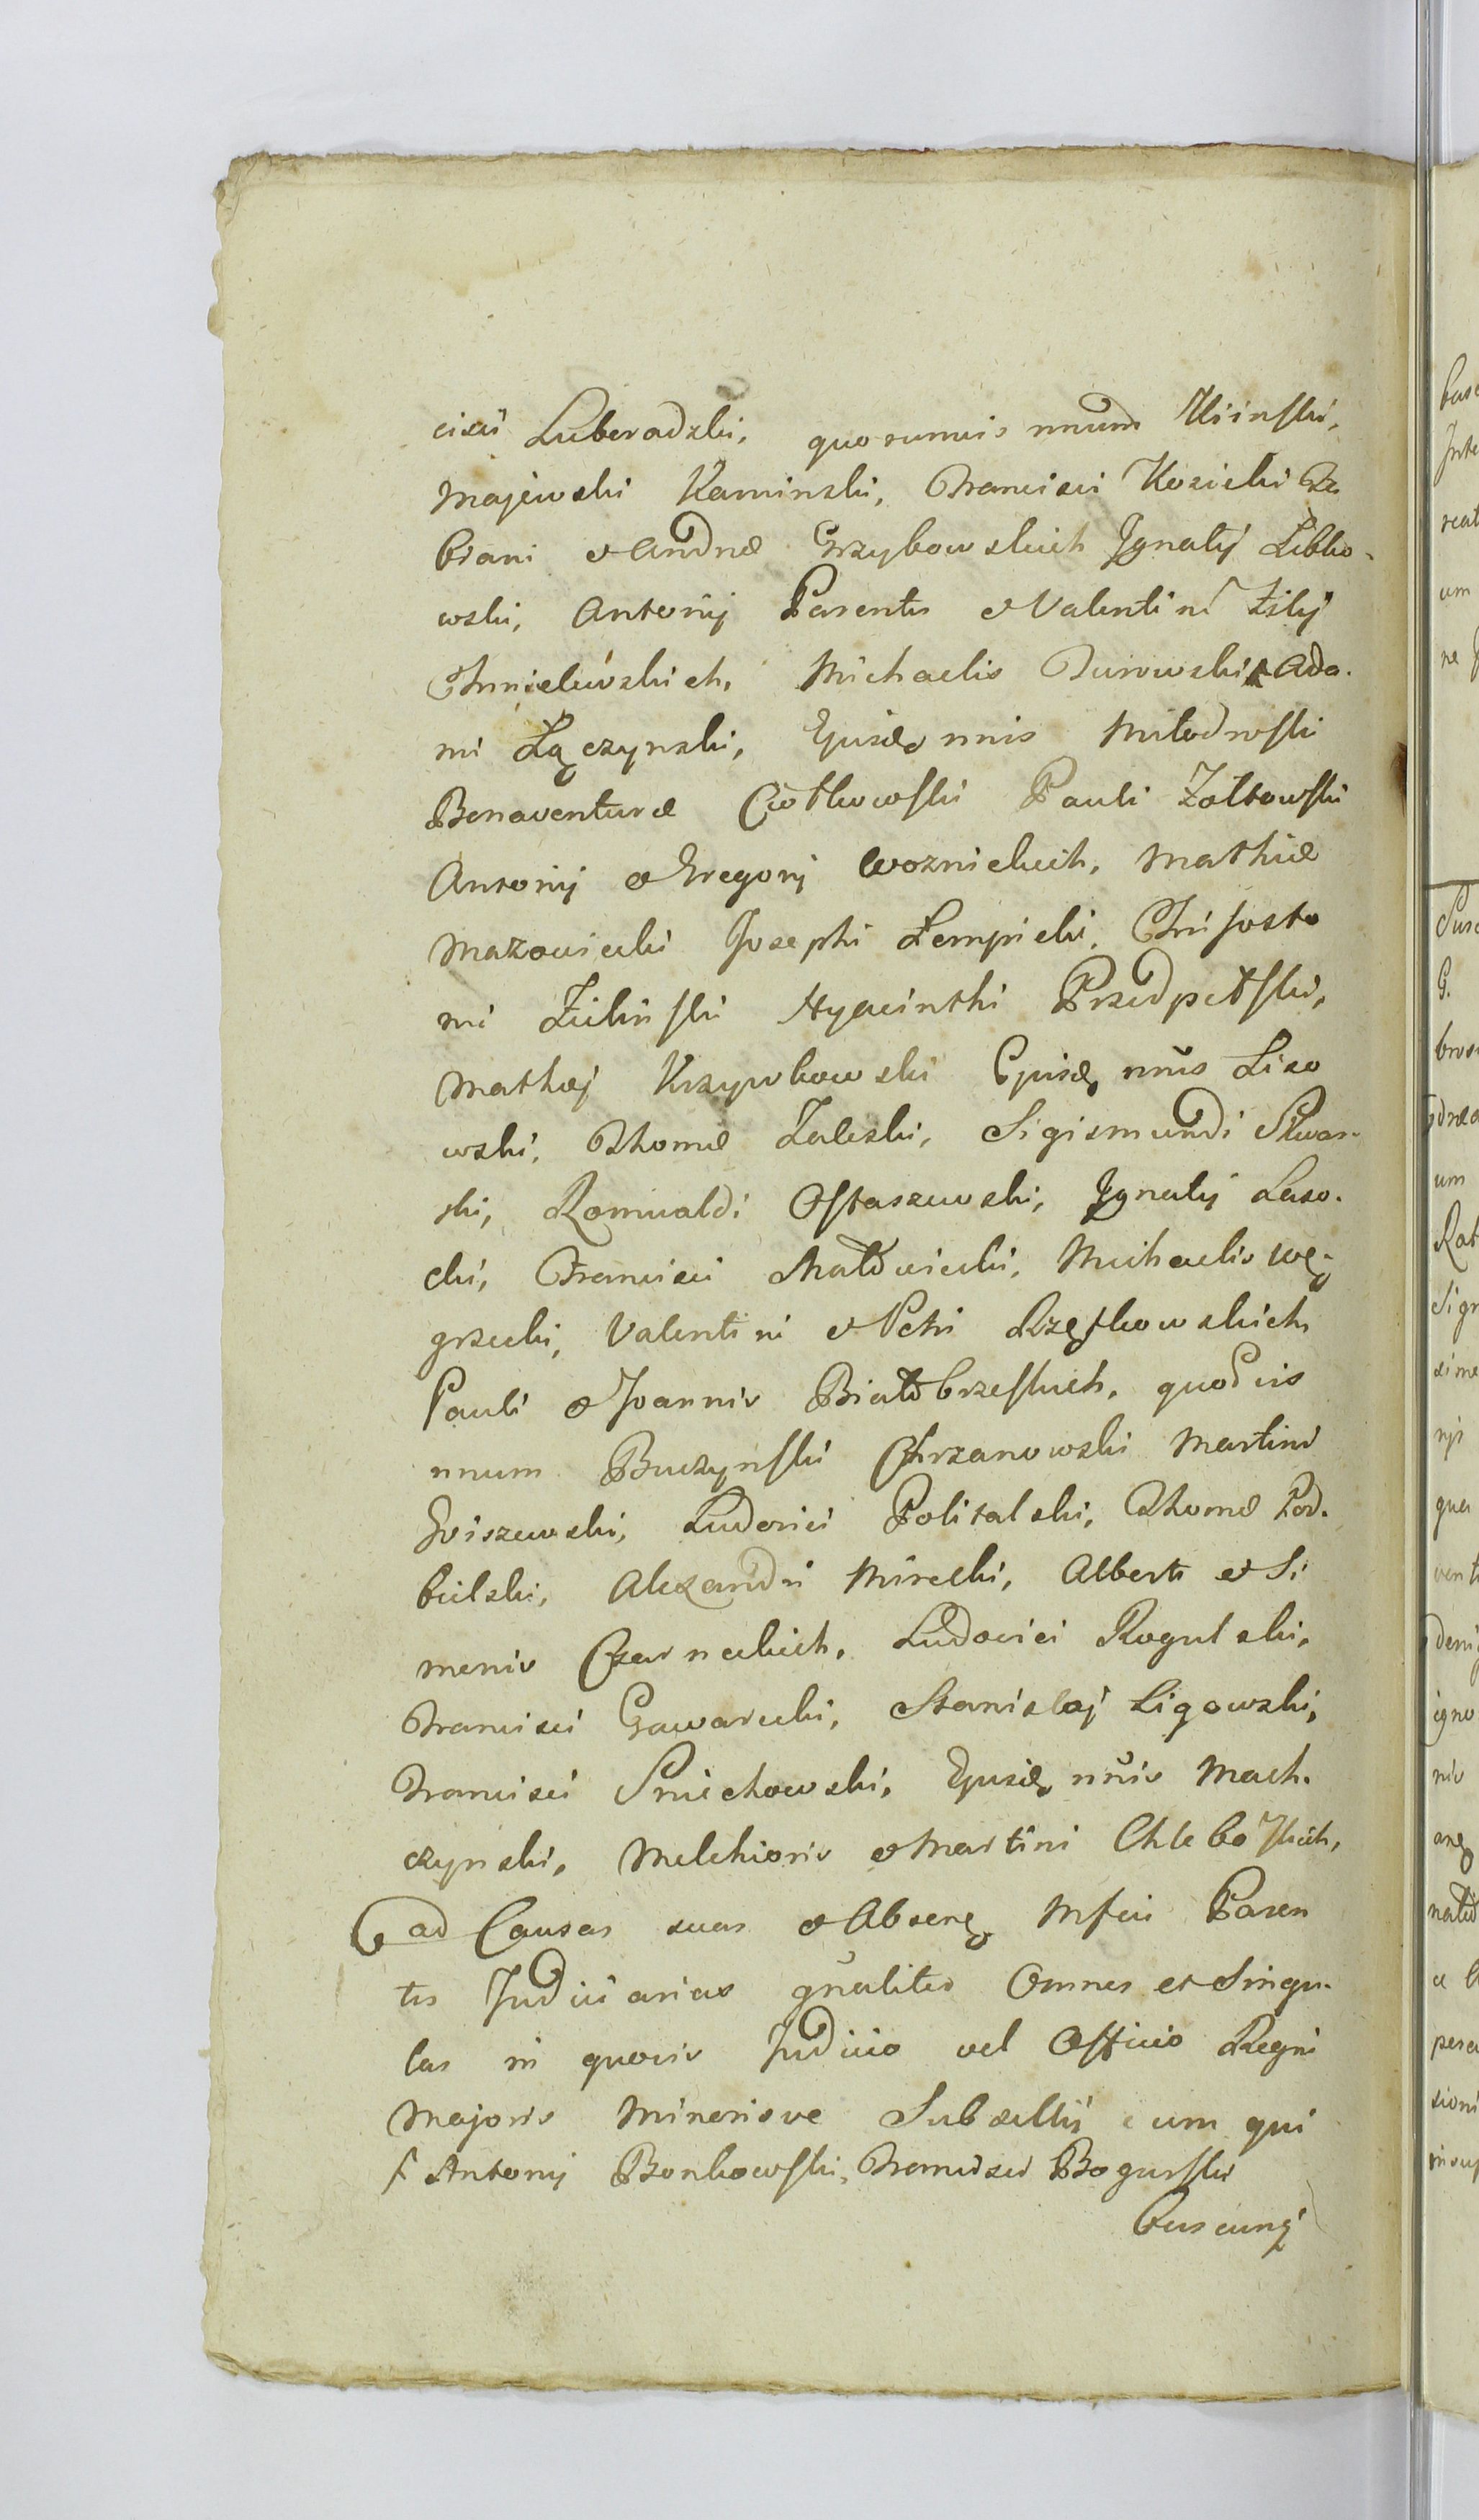 cisci Luberadzki, quorumvis nnum Kiinski,
Majewski Kaminski, Francisci Kosicki Fa
biani et Andreæ Grzybowskich Ignatij Libko-
wski, Antonij Parentis et Valentini Filij
Chmielewskich, Michaelis Turowski Ada-
mi Łączynski, Ejusdẽ nnis Młodowski
Bonaventuræ Ciołkowski Pauli Żołtowski
Antonij et Gregorij Woznickich, Mathiæ
Mazowiecki Josephi Łempicki, Chrisosto
mi Zielinski Hyacinthi Przedpełski,
Mathæj Krzywkowski Ejusdẽ nnis Liso
wski, Thomæ Zaleski, Sigismundi Skwar-
ski, Romualdi Ostaszewski, Ignatij Laso-
cki, Francisci Małowiecki, Michaelis Wę-
grzecki, Valentini et Petri Rzęszkowskich
Pauli et Joannis Białobrzeskich, quodvis
nnum Buczynski Chrzanowski Martini
Goiszewski, Ludovici Politalski, Thomæ Pod-
bielski, Alexandri Mirecki, Alberti et Si
meonis Czarneckich, Ludovici Rogulski,
Francisci Gawarecki, Stanislaj Ligowski,
Francisci Smiechowski, Ejusdẽ nnis Mach-
czynski, Melchioris et Martini Chlebowskich,
ad Causas suas et Absentẽ Mfci Paren
tis Judiciarias gnaliter Omnes et Singu-
las in quovis Judicio vel Officio Regni
Majoris Minorisve Subsellij cum qui
Antonij Bonkowski, Francisci Bogurski
buscunq̃